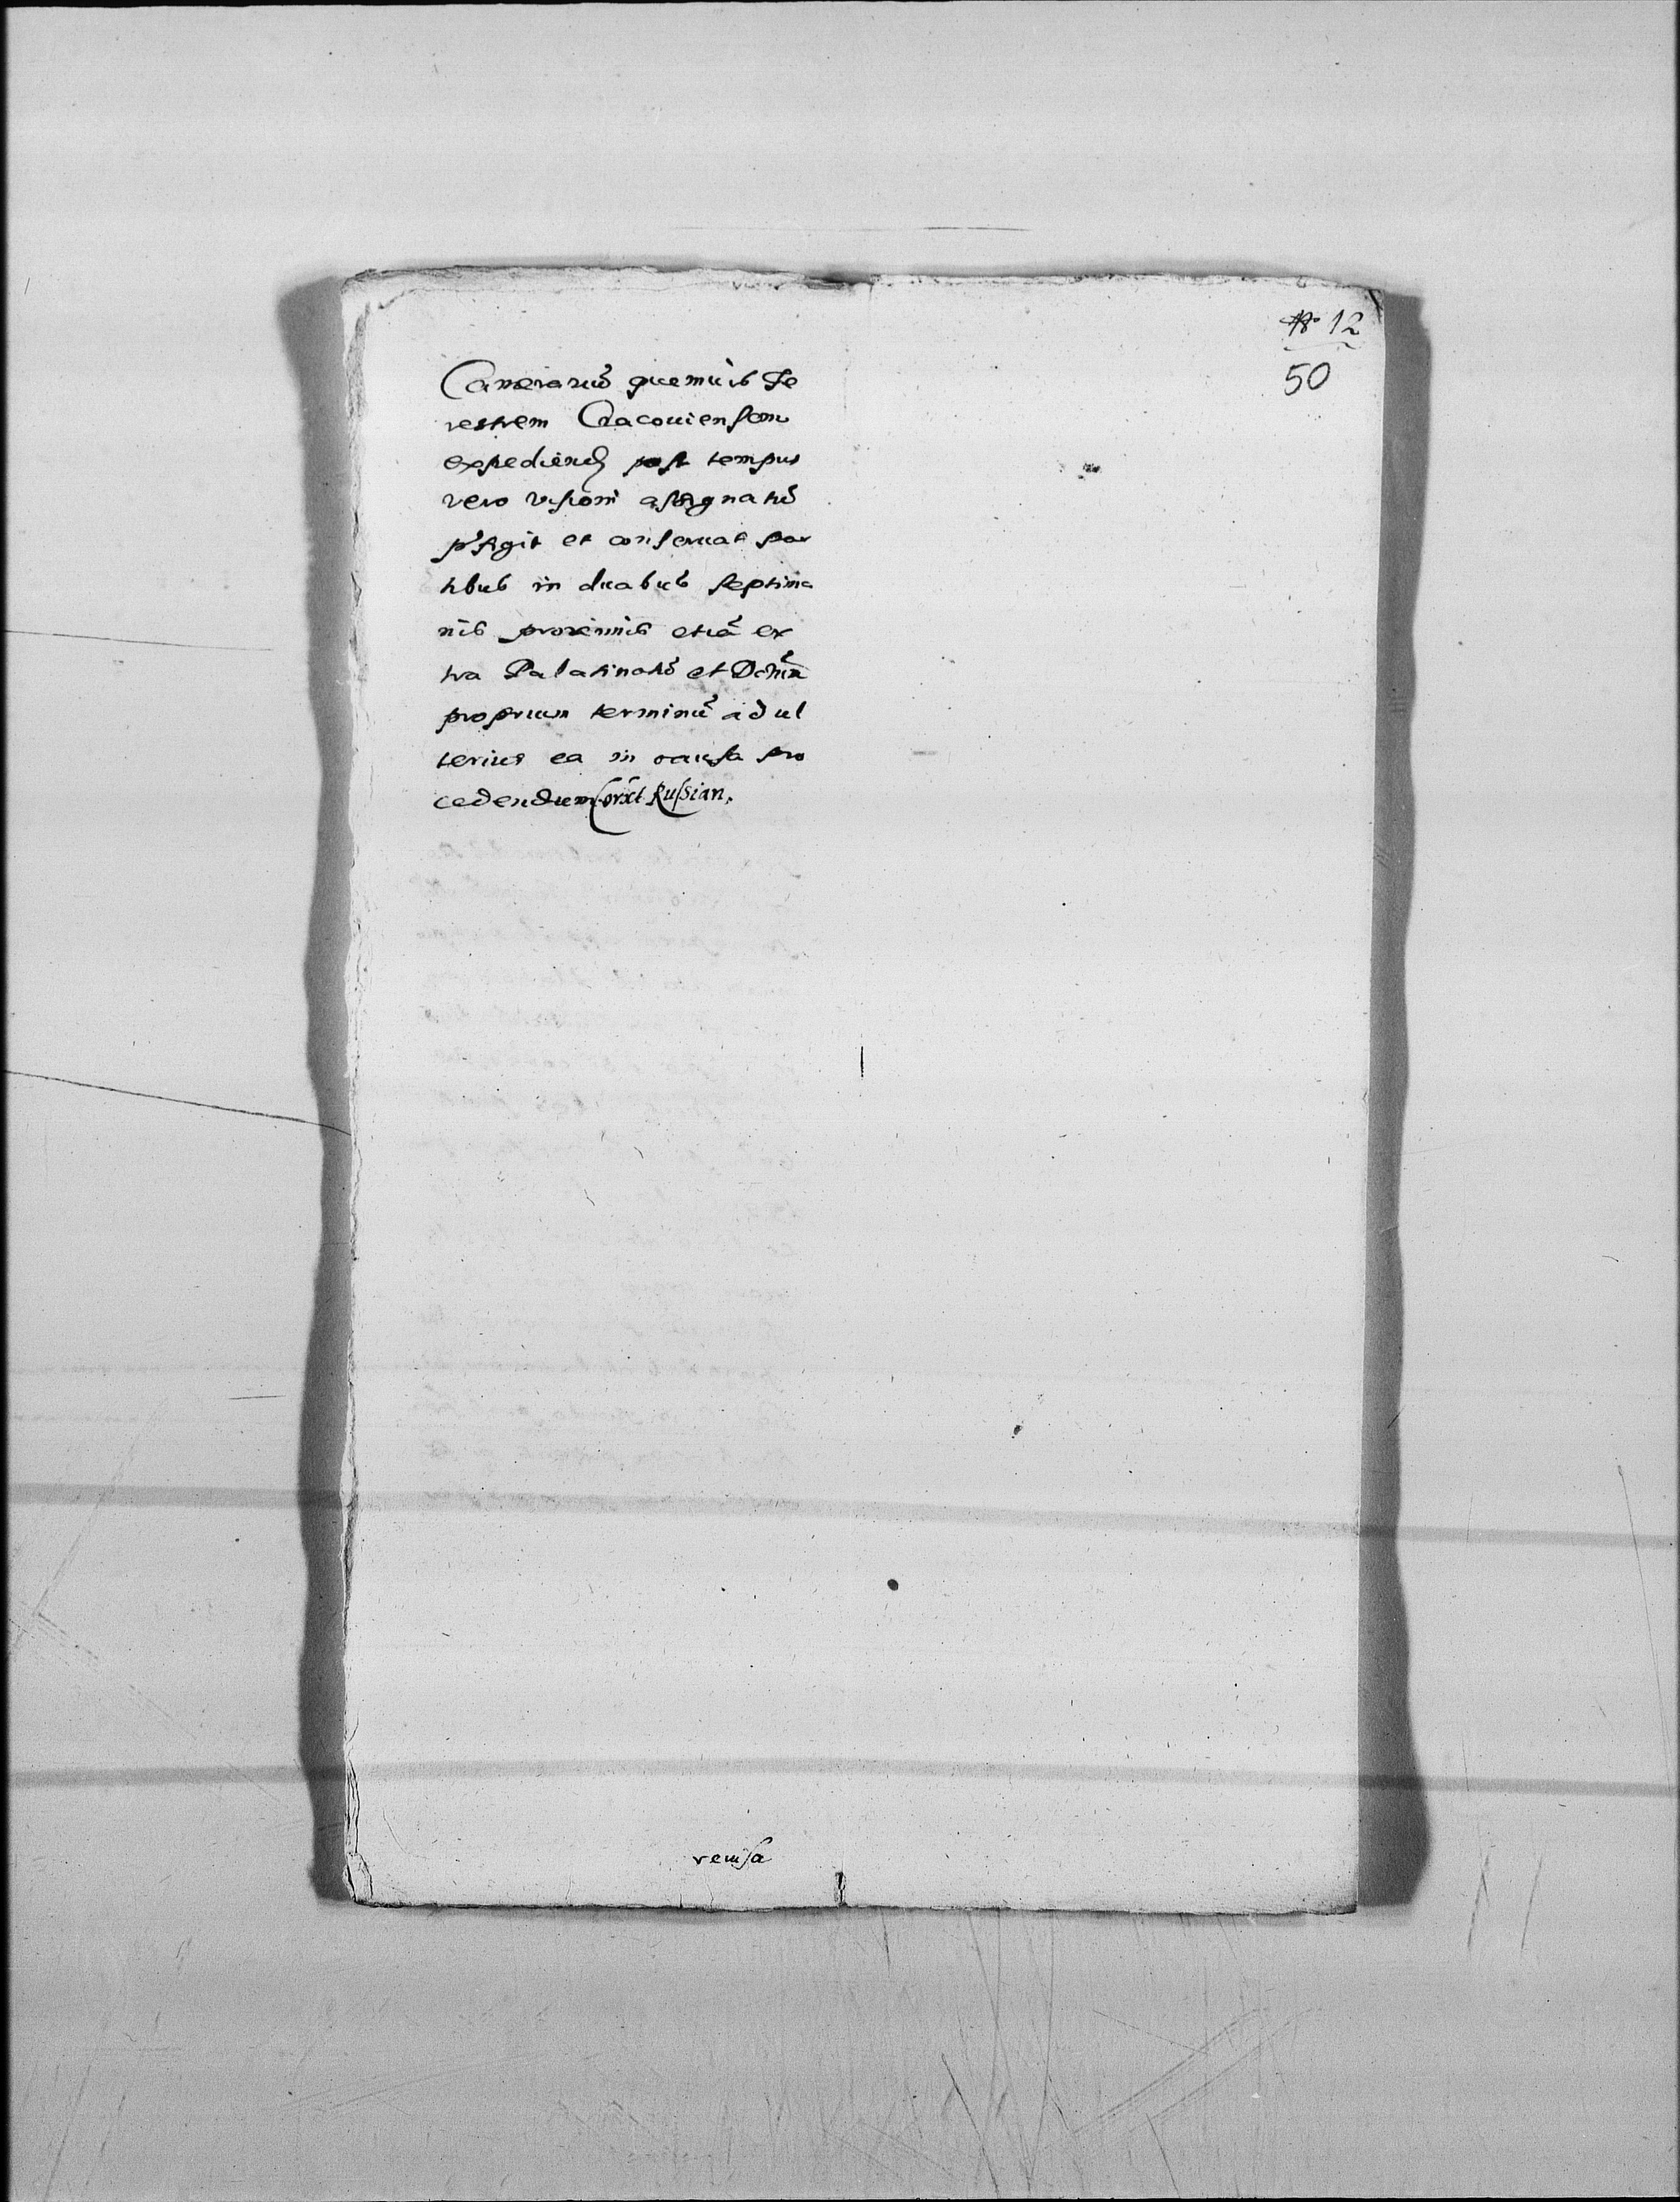 № 12
50
Camerariũ quemuis Te
restrem Cracouiensem
expediend post tempus
vero visioni assignatũ
p̃figit et conseruat par
tibus in duabus septima
nis proximis etiã ex
tra Palatinatũ et
proprium terminũ ad ul
terius ea in causa pro
cedendum Russian.